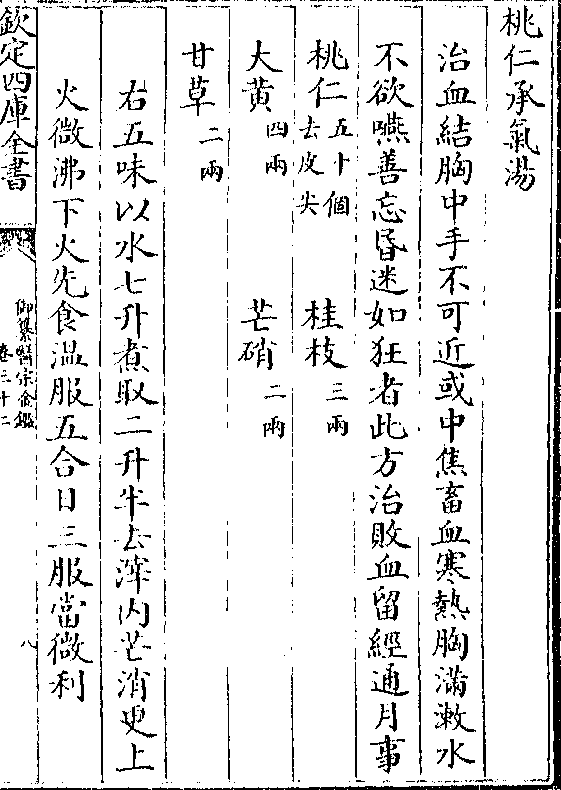 桃仁承氣湯
治血結胸中手不可近或中焦畜血寒熱胸滿漱水
不欲嚥善忘昏迷如狂者此方治敗血留經通月事
桃仁五十個去皮尖 桂枝三兩
大黃四兩 芒硝二兩
甘草二兩
右五味以水七升煮取二升半去滓内芒消更上
火微沸下火先食溫服五合日三服當微利
欽定四庫全書
御纂醫宗金鑑
卷三十二
八